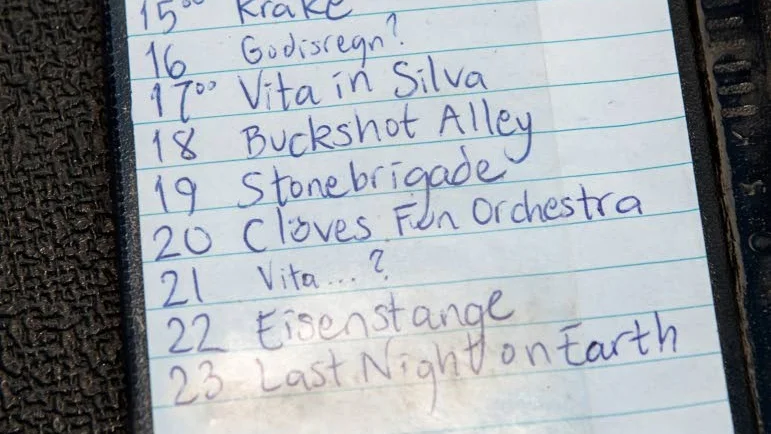 15⁰⁰ Krake
16 Godisregn?
17⁰⁰ Vita in Silva
18 Buckshot Alley
19 Stonebrigade
20 Cloves Fun Orchestra
21 Vita...?
22 Eisenstange
23 Last Night on Earth